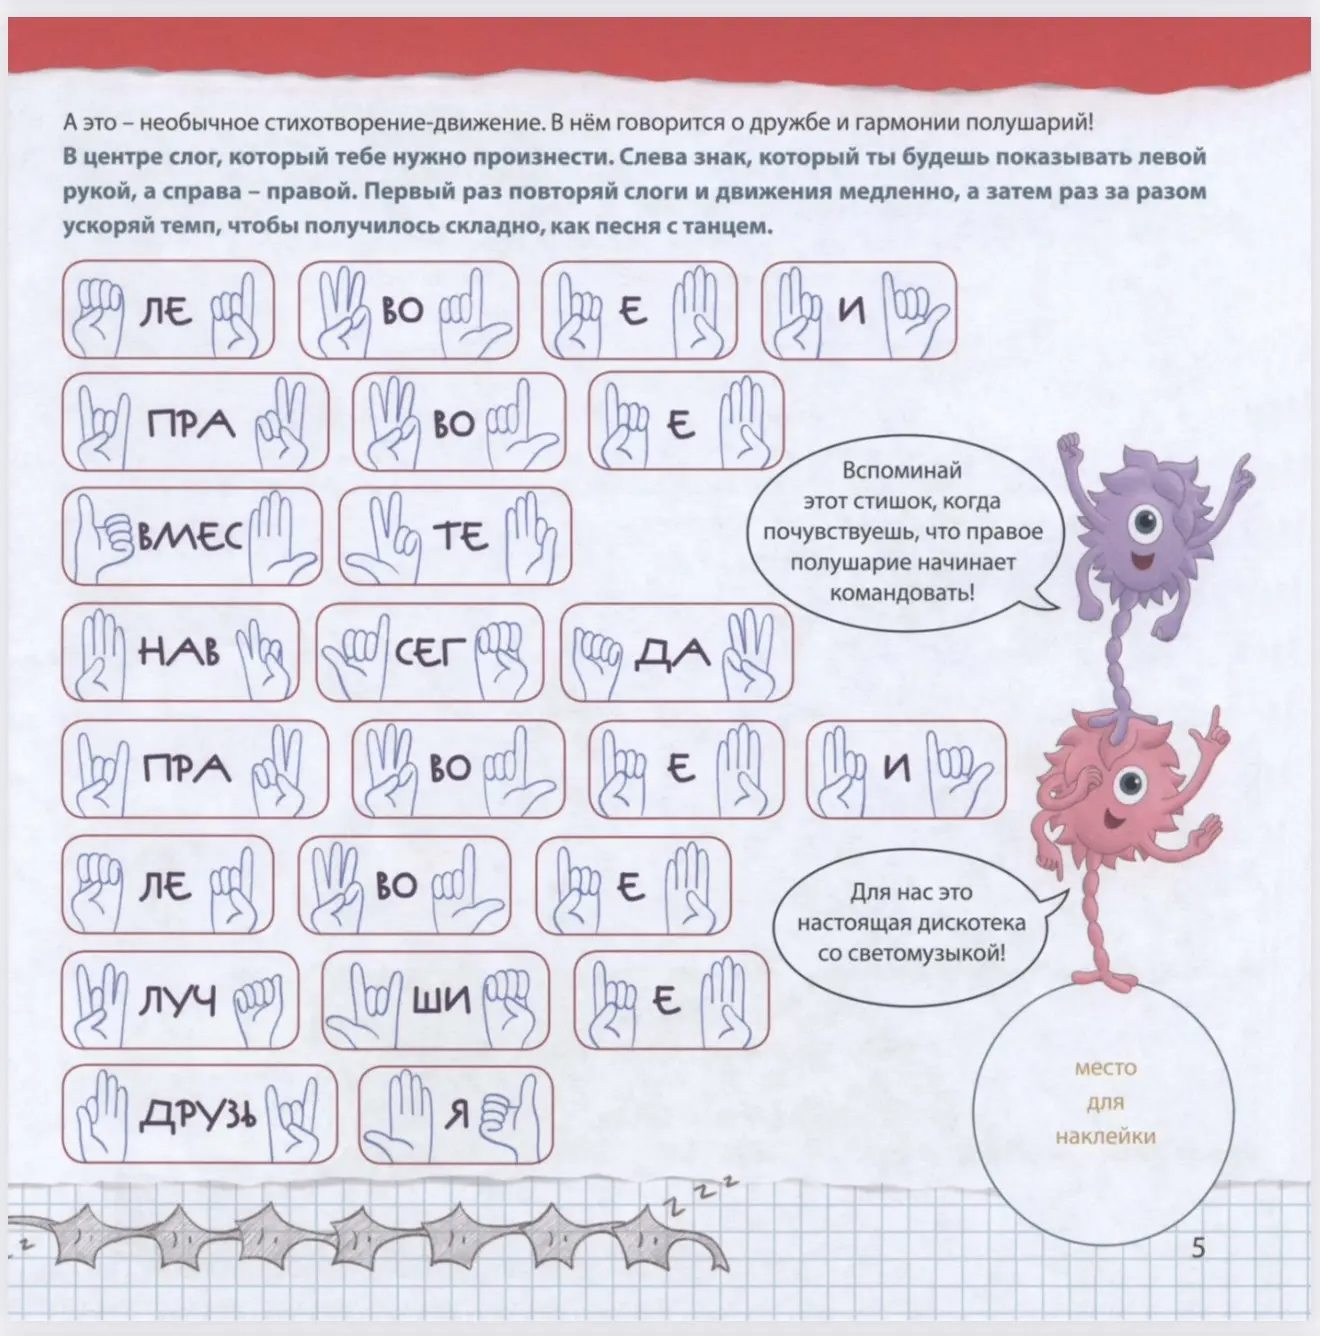 А это – необычное стихотворение-движение. В нём говорится о дружбе и гармонии полушарий!
В центре слог, который тебе нужно произнести. Слева знак, который ты будешь показывать левой
рукой, а справа – правой. Первый раз повторяй слоги и движения медленно, а затем раз за разом
ускоряй темп, чтобы получилось складно, как песня с танцем.
ЛЕ ВО Е И
ПРА ВО Е
ВМЕС ТЕ
НАВ СЕГ ДА
ПРА ВО Е И
ЛЕ ВО Е
ЛУЧ ШИ Е
ДРУЗЬ Я
Вспоминай
этот стишок, когда
почувствуешь, что правое
полушарие начинает
командовать!
Для нас это
настоящая дискотека
со светомузыкой!
место
для
наклейки
z z z
z z
5